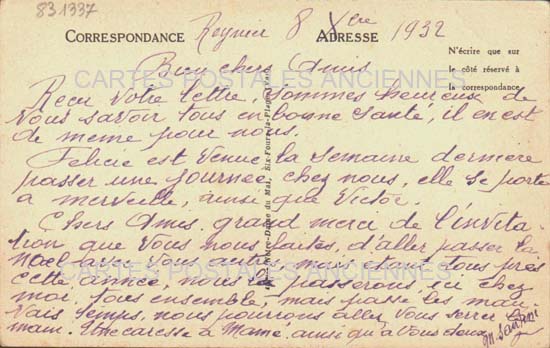 831337
CORRESPONDANCE
Reynier 8 Xbre 1932
ADRESSE
N'écrire que sur
le côté réservé à
la correspondance
CARTES POSTALES ANCIENNES
Bien chers Amis
Recu votre lettre, sommes heureux de
vous savoir tous en bonne santé, il en est
de meme pour nous.
Felicie est venue la semaine derniere
passer une journée chez nous, elle se porte
a merveille, ainsi que Victor.
Chers Amis, grand merci de l'invita
tion que vous nous faites, d'aller passer la
Noel avec vous autre, mais étant tous près
cette année, nous la passerons, ici chez
moi, tous ensemble, mais passé les mau
vais temps, nous pourrons aller vous serrer la
main. Une caresse a Mamé, ainsi qu'à vous deux
CARTES POSTALES ANCIENNES
du Mai, Six-Fours-la-Plage (Var)